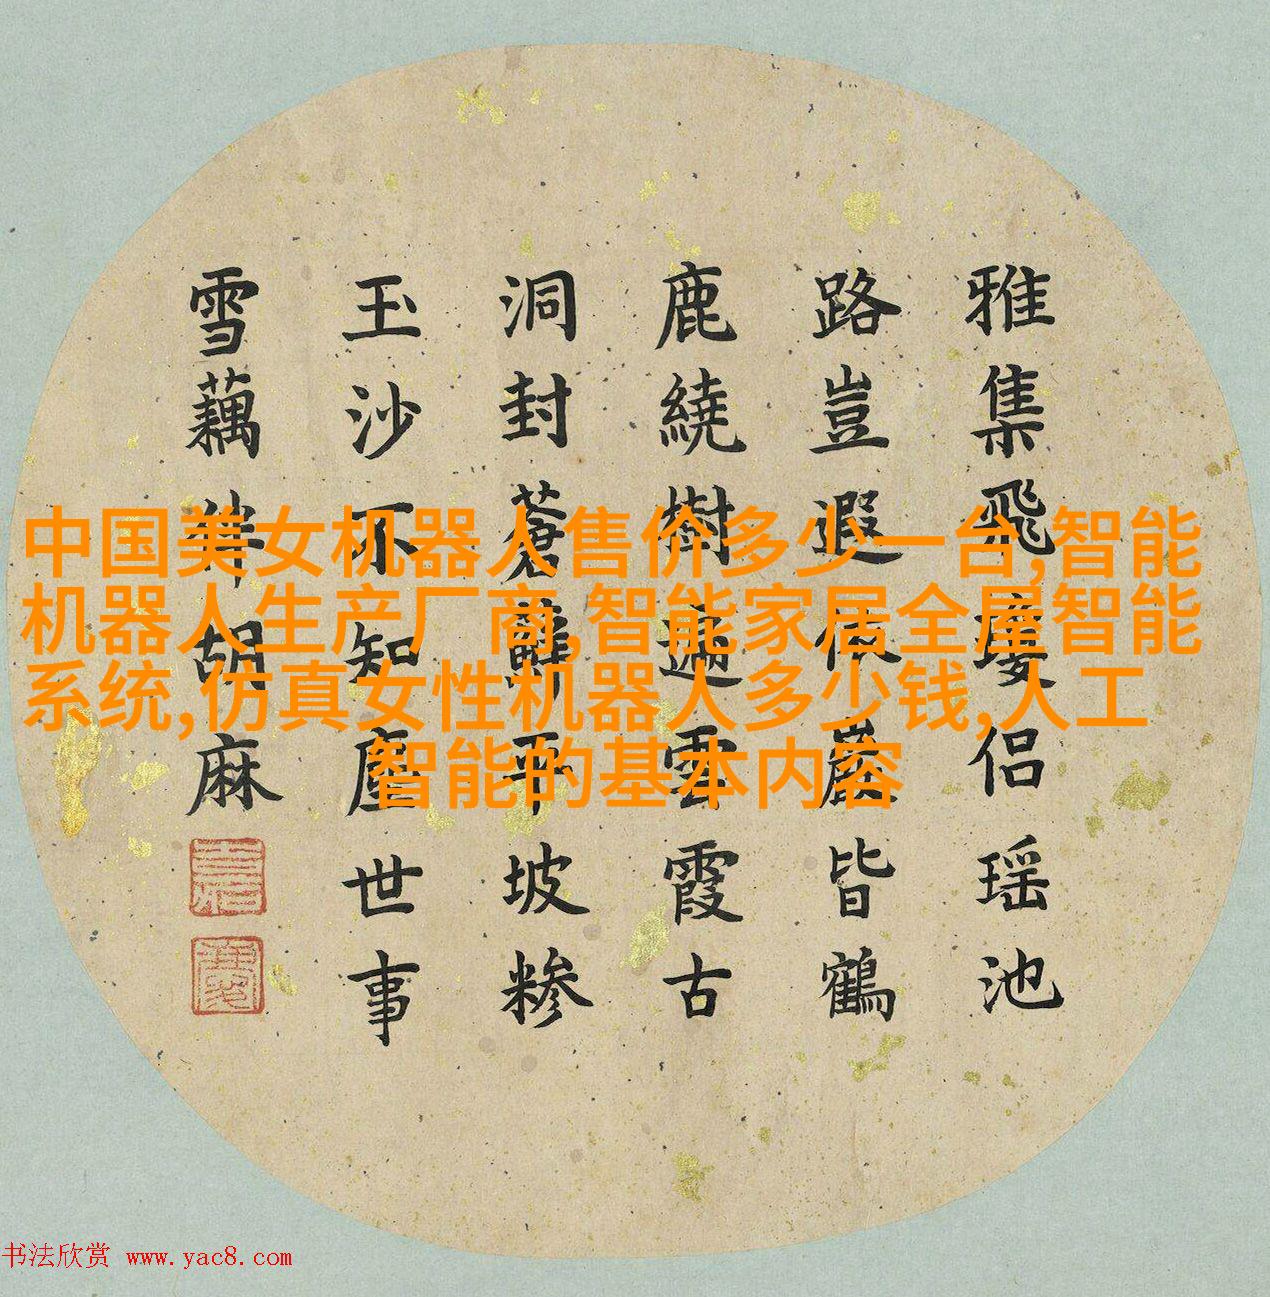 雅集飛瓊侶瑶池
路豈遐依巖皆鶴
鹿繞樹遍雲霞古
洞封蒼蘚平坡糁
玉沙不知塵世事
雪藕胡麻
中国美女机器人售价多少一台,智能
机器人生产厂商,智能家居全屋智能
系统,仿真女性机器人多少钱,人工
智能的基本内容
书法欣赏 www.yac8.com